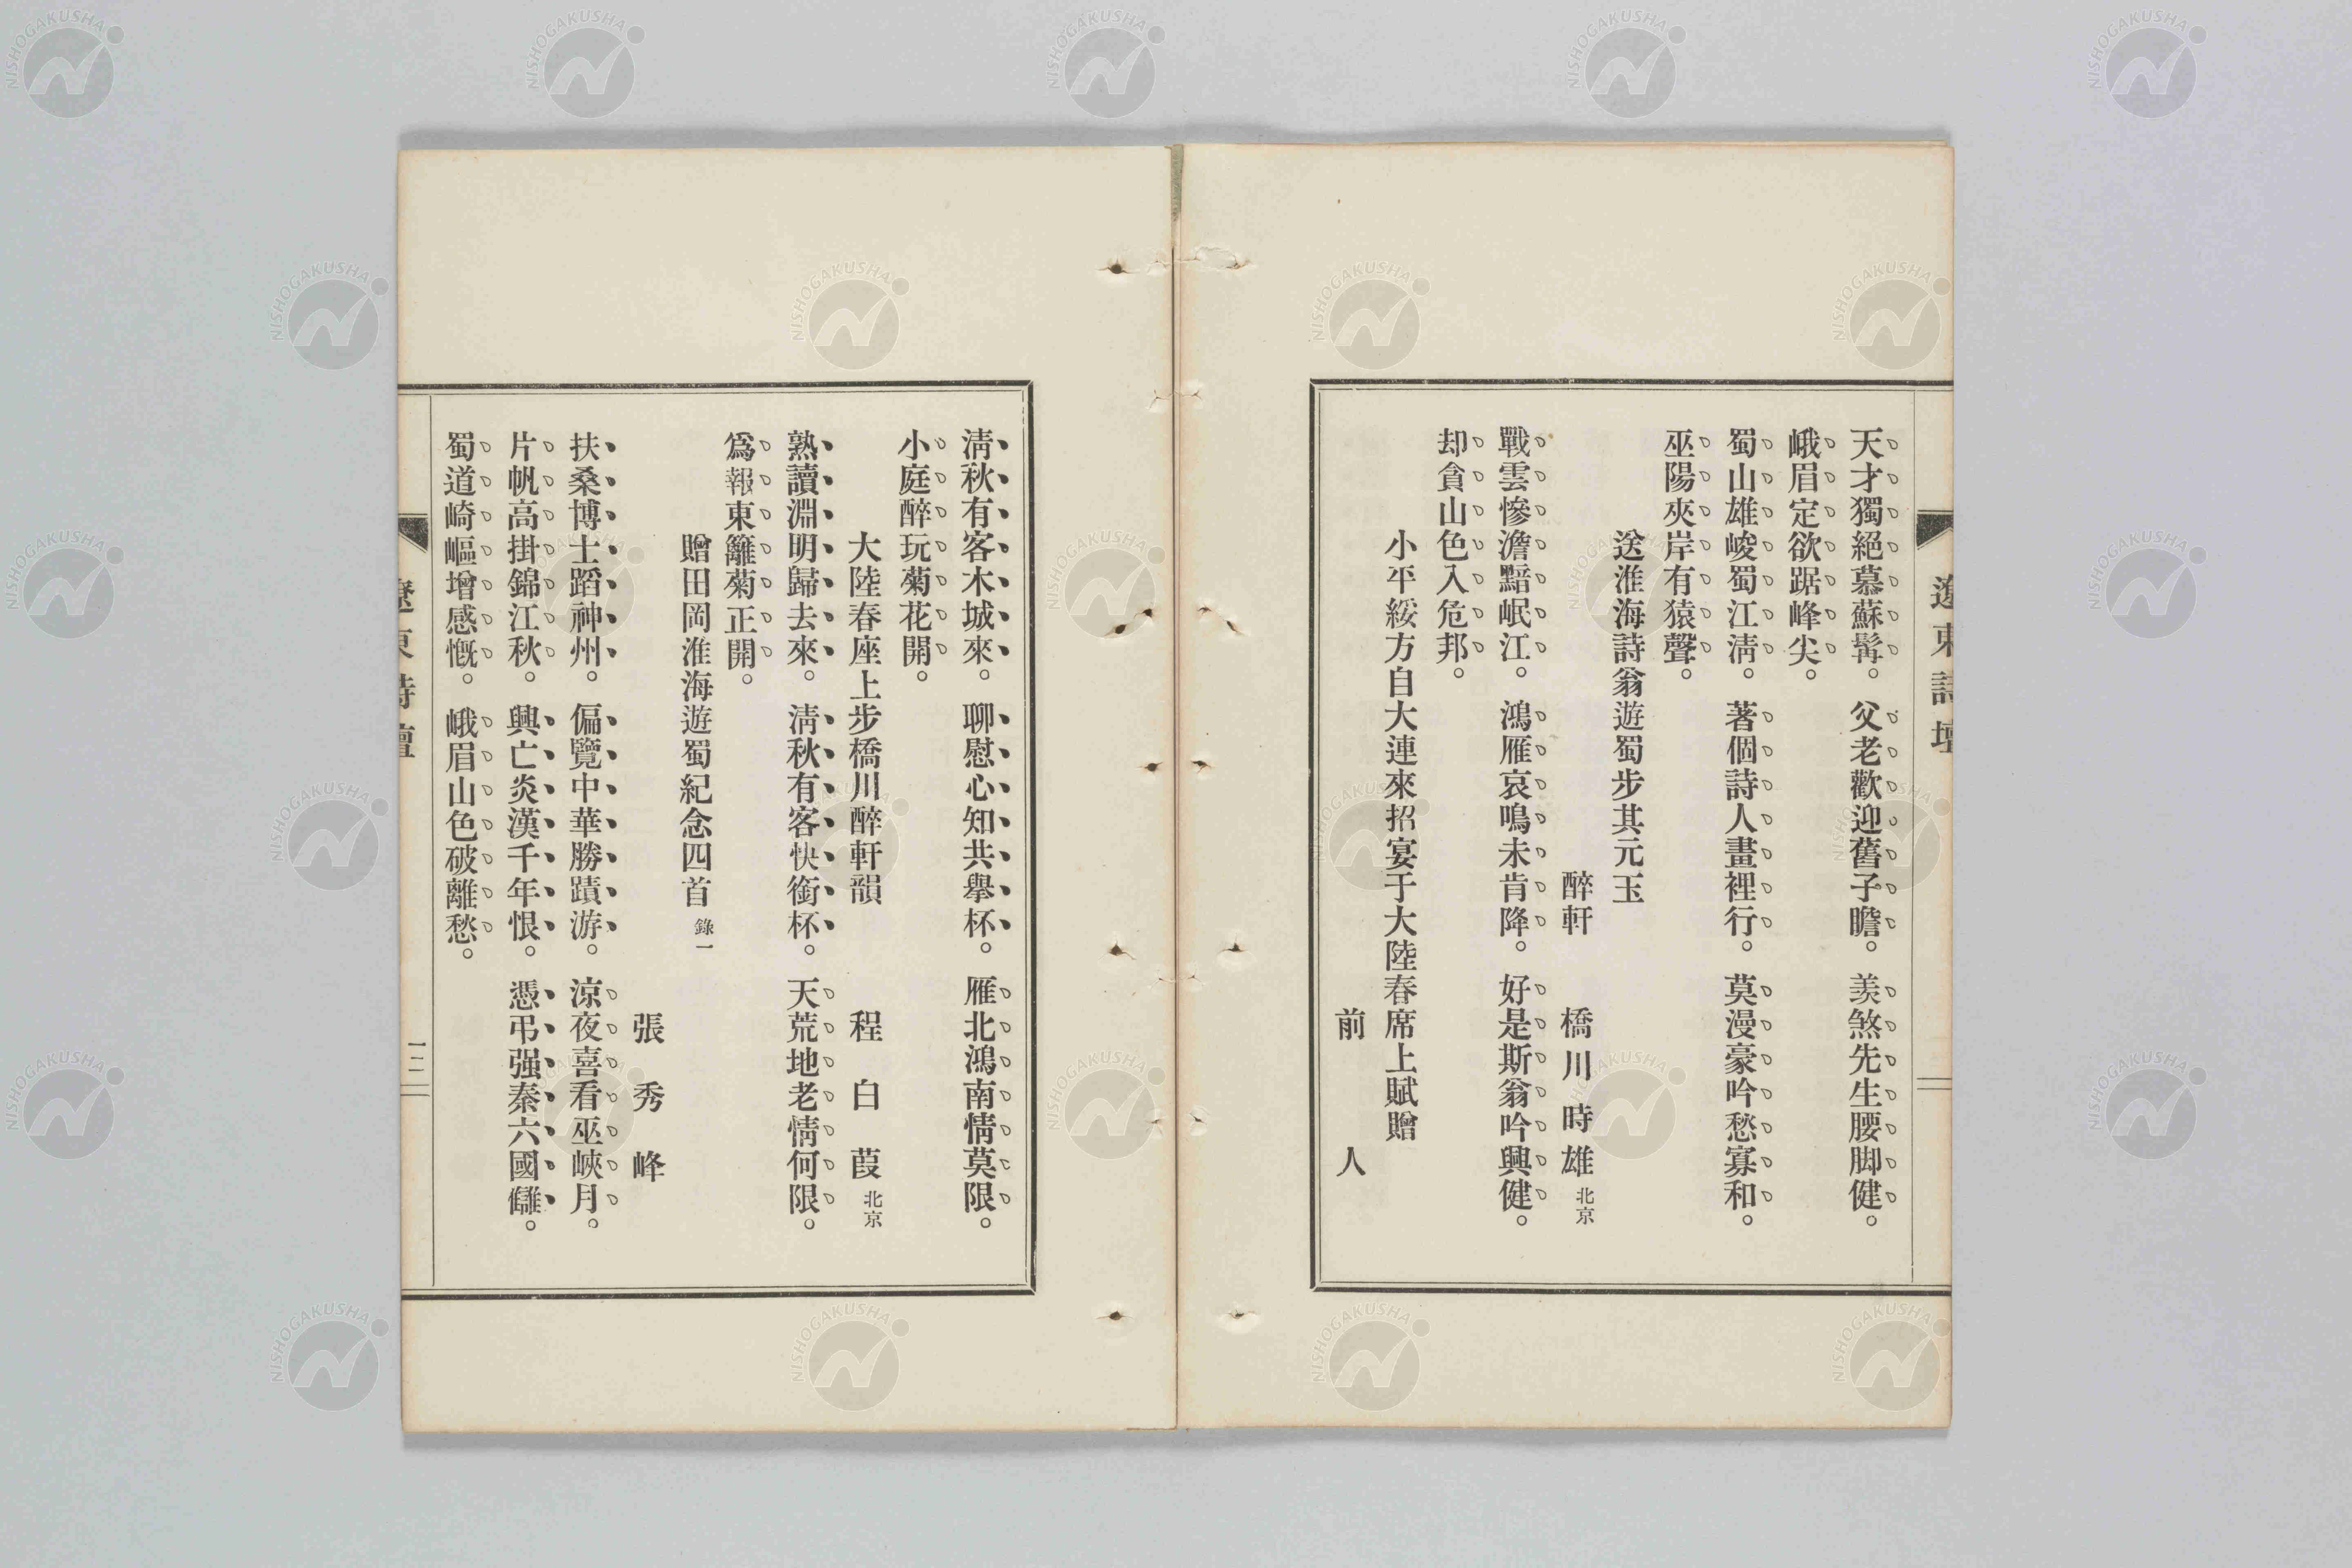 遼東詩壇
天才獨絕慕蘇髯。父老歡迎舊子瞻。羨煞先生腰脚健。
峨眉定欲踞峰尖。
蜀山雄峻蜀江淸。著個詩人畫裡行。莫漫豪吟愁寡和。
巫陽夾岸有猿聲。
送淮海詩翁遊蜀步其元玉
醉軒 橋川時雄 北京
戰雲慘澹黯岷江。鴻雁哀鳴未肯降。好是斯翁吟興健。
却貪山色入危邦。
小平綏方自大連來招宴于大陸春席上賦贈
前人
淸秋有客木城來。聊慰心知共擧杯。雁北鴻南情莫限。
小庭醉玩菊花開。
大陸春座上步橋川醉軒韻 程白葭 北京
熟讀淵明歸去來。淸秋有客快銜杯。天荒地老情何限。
爲報東籬菊正開。
贈田岡淮海遊蜀紀念四首 錄一
張秀峰
扶桑博士蹈神州。偏覽中華勝蹟游。涼夜喜看巫峽月。
片帆高掛錦江秋。興亡炎漢千年恨。憑弔强秦六國讎。
蜀道崎嶇增感慨。峨眉山色破離愁。
遼東詩壇
一二
NISHOGAKUSHA